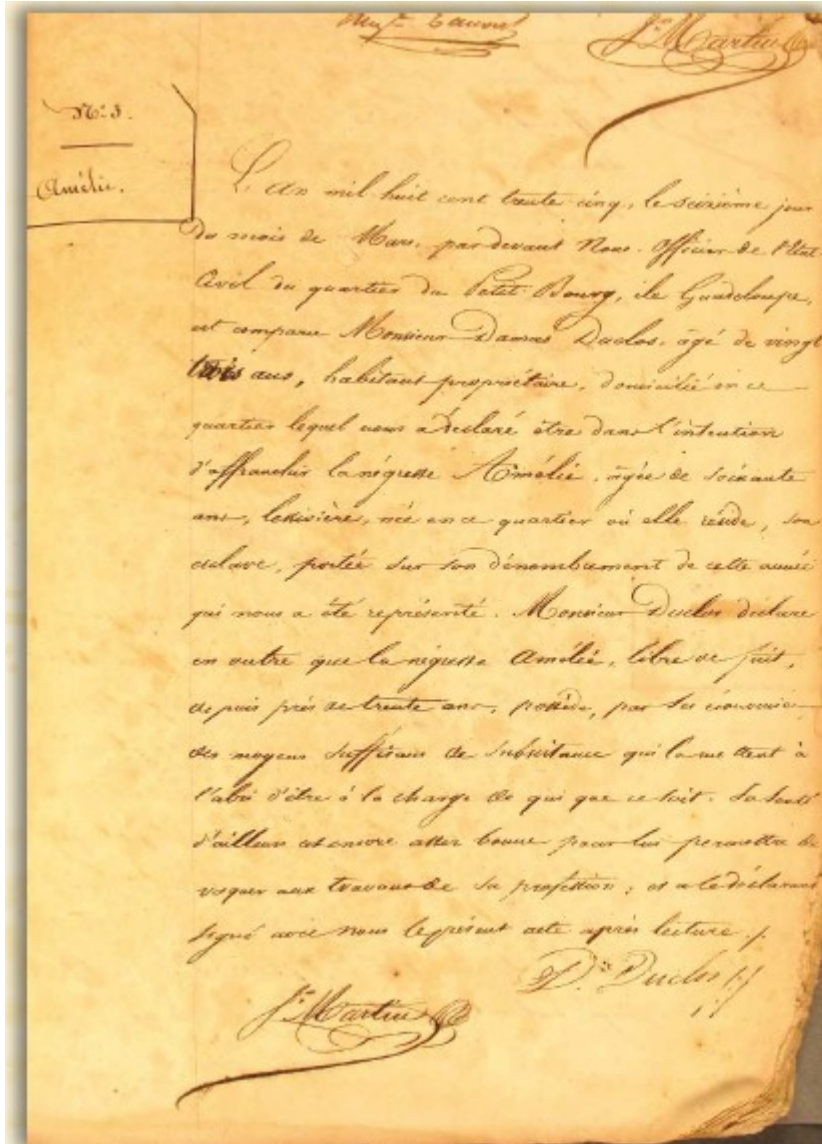 J.n Martin
N.o 3.
Amélie.
L'an mil huit cent trente cinq, le seizième jour
du mois de Mars, par devant Nous Officier de l'Etat
Civil du quartier du Petit-Bourg, île Guadeloupe,
est comparu Monsieur Damas Duclos, âgé de vingt
trois ans, habitant propriétaire, domicilié en ce
quartier lequel nous a déclaré être dans l'intention
d'affranchir la négresse Amélie, âgée de soixante
ans, lessivière, née en ce quartier où elle réside, son
esclave, portée sur son dénombrement de cette année
qui nous a été représenté. Monsieur Duclos déclare
en outre que la négresse Amélie, libre de fait,
depuis près de trente ans, possède, par ses économies
des moyens suffisans de subsistance qui la mettent à
l'abri d'être à la charge de qui que ce soit. Sa santé
d'ailleurs est encore assez bonne pour lui permettre de
vaquer aux travaux de sa profession; et a le déclarant
signé avec nous le présent acte après lecture ./.
D.as Duclos
J.n Martin